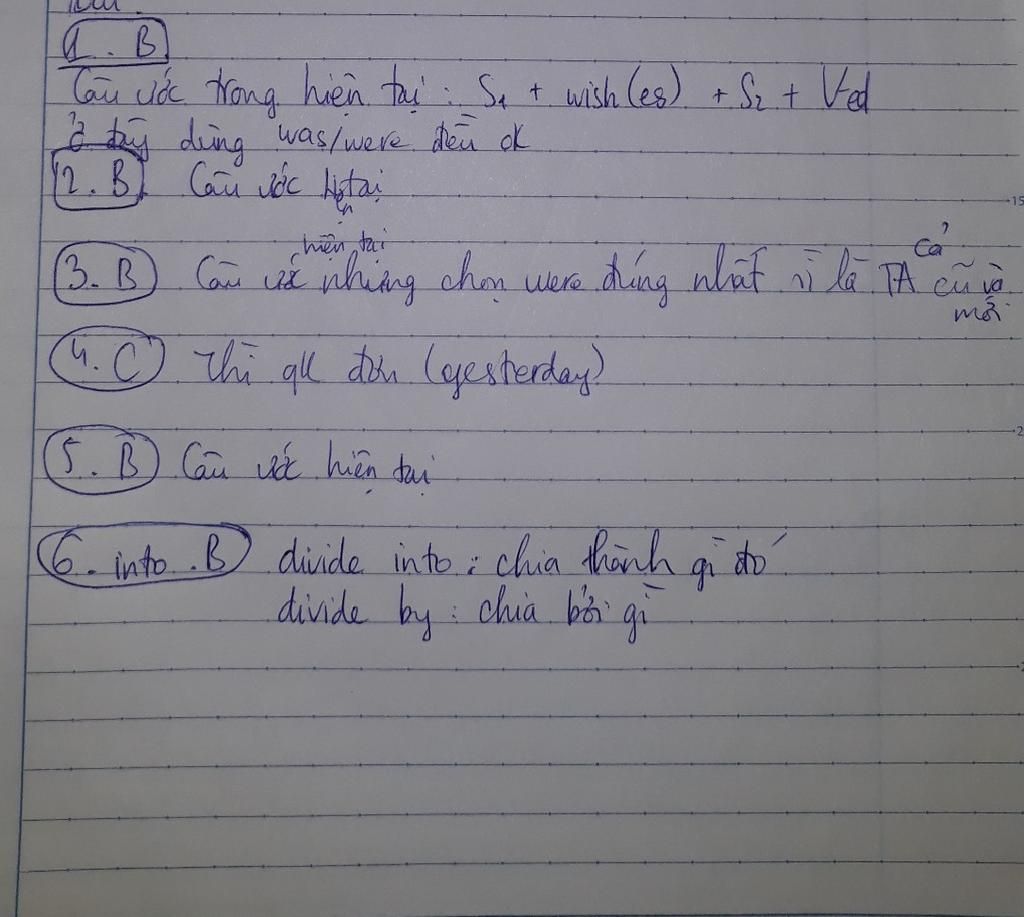 1. B
Câu ước trong hiện tại: S1 + wish(es) + S2 + Ved
ở đây dùng was/were đều ok
2. B Câu ước hiện tại
3. B Câu ước hiện tại nhưng chọn were đúng nhất vì là TA cả cũ và mới
4. C Thì qk đơn (yesterday)
5. B Câu ước hiện tại
6. into. B divide into: chia thành gì đó
divide by: chia bởi gì
15